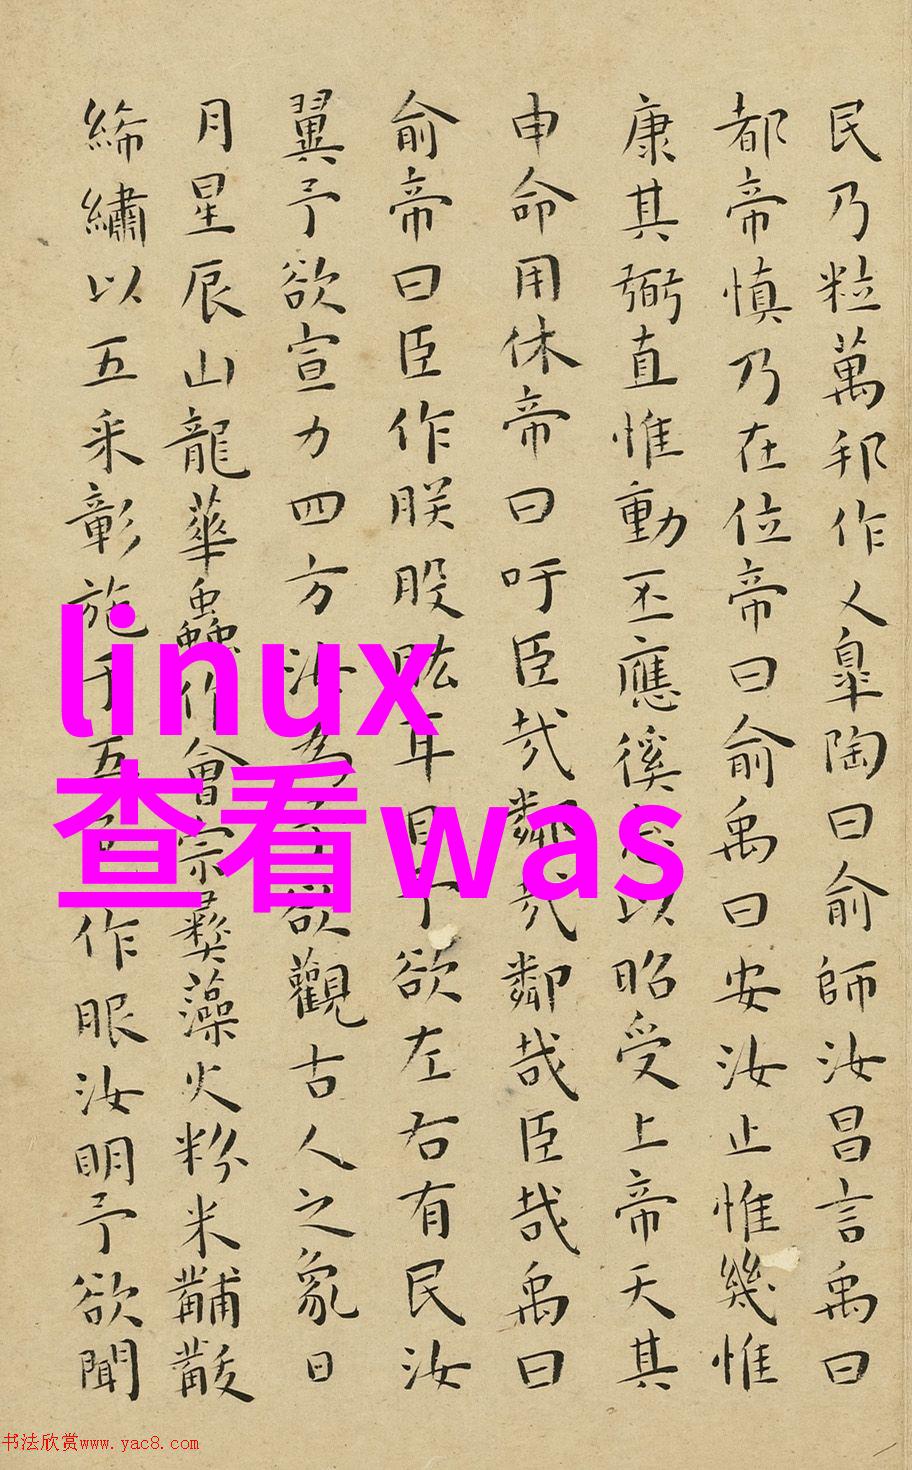 民乃粒萬邦作乂皐陶曰俞師汝昌言禹曰
都帝慎乃在位帝曰俞禹曰安汝止惟幾惟
康其弼直惟動丕應徯志以昭受上帝天其
申命用休帝曰吁臣哉鄰哉鄰哉臣哉禹曰
俞帝曰臣作朕股肱耳目予欲左右有民汝
翼予欲宣力四方汝為予欲觀古人之象日
月星辰山龍華蟲作會宗彝藻火粉米黼黻
絺繡以五采彰施于五作服汝明予欲聞
linux
查看was
书法欣赏www.yac8.com